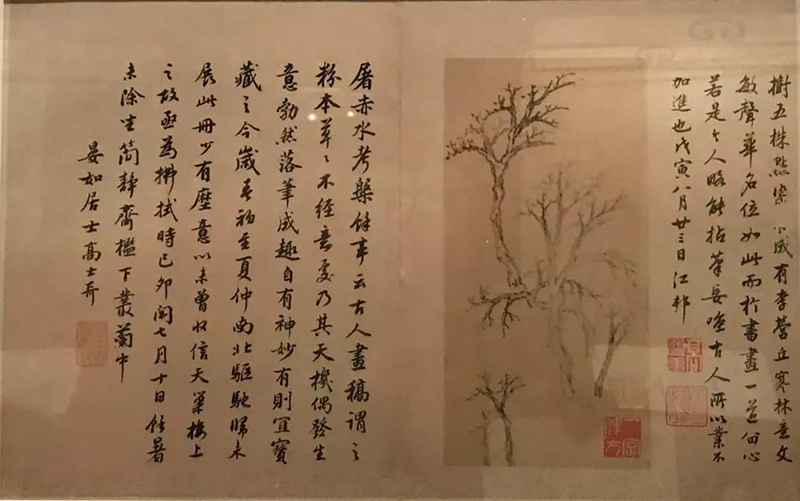 樹五株點染小成有李營丘寒林意文
敏聲華名位如此而於書畫一道留心
若是今人略能拈筆妄嗤古人所以業不
加進也戊寅八月廿三日江邨
屠赤水考槃餘事云古人畫稿謂之
粉本草草不經意處乃其天機偶發生
意勃然落筆成趣自有神妙有則宜寶
藏之今歲春初至夏仲南北驅馳歸來
展此冊少有塵意以未曾收信天巢樓上
之故亟為拂拭時己卯閏七月十日餘暑
未除坐簡靜齋檻下叢蘭中
晏如居士高士奇